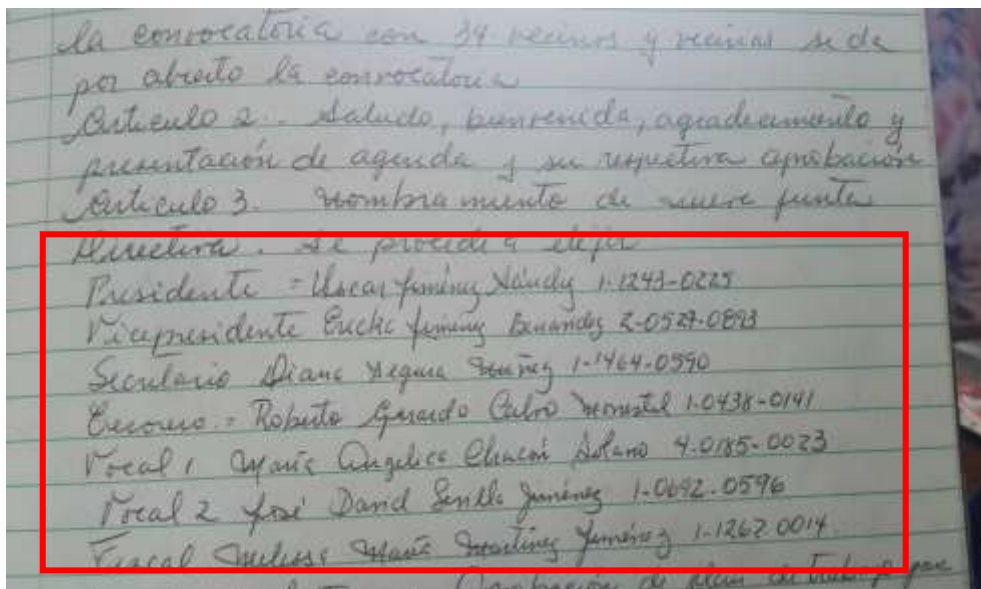 la convocatoria con 34 vecinos y vecinas se da
por abierto la convocatoria
Articulo 2. Saludo, bienvenida, agradecimiento y
presentación de agenda y su respectiva aprobación
Articulo 3. Nombramiento de nueva junta
Directiva. Se procede a elejir
Presidente = Oscar Jiménez 1-1243-0225
Vicepresidente Jimenez 2-0527-0893
Secretario Diana Segura Nuñez 1-1464-0590
Tesorero = Roberto Gerardo Calvo 1-0438-0141
Vocal 1 María Angelica Chacón Solano 4-0185-0023
Vocal 2 José David Jiménez 1-0692-0596
Fiscal Melissa María Martinez Jiménez 1-1262-0014
de plan de trabajo por